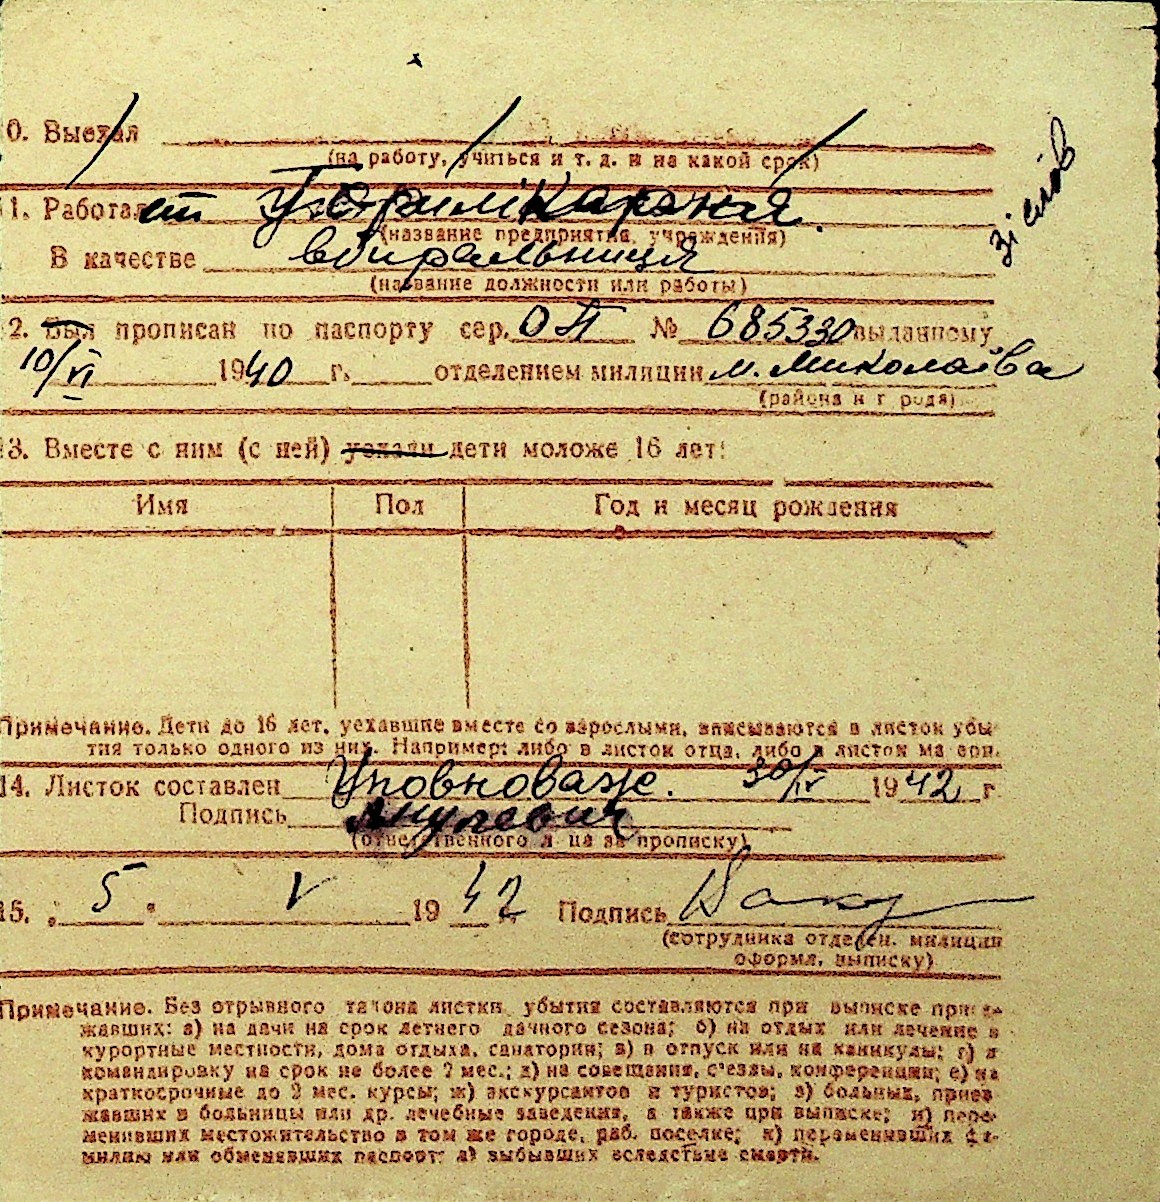 0. Выехал
(на работу, учиться и т. д. и на какой срок)
зі слів
1. Работает
(название предприятия, учреждения)
В качестве вбиральниця
(название должности или работы)
2. Был прописан по паспорту сер. ОП № 685330 выданному
10/VI 1940 г. отделением милиции м. Миколаїва
(района и города)
13. Вместе с ним (с ней) уехали дети моложе 16 лет:
Имя Пол Год и месяц рождения
Примечание. Дети до 16 лет, уехавшие вместе со взрослыми, вписываются в листок убы-
тия только одного из них. Например: либо в листок отца, либо в листок матери.
14. Листок составлен Уповноваж. 30/IV 1942 г.
Подпись
(ответственного лица за прописку)
15. „5“ V 1942 Подпись
(сотрудника отделен. милиции
оформл. выписку)
Примечание. Без отрывного талона листки убытия составляются при выписке приез-
жавших: а) на дачи на срок летнего дачного сезона; б) на отдых или лечение в
курортные местности, дома отдыха, санатории; в) в отпуск или на каникулы; г) в
командировку на срок не более 2 мес.; д) на совещания, с'езды, конференции; е) на
краткосрочные до 2 мес. курсы; ж) экскурсантов и туристов; з) больных, приез-
жавших в больницы или др. лечебные заведения, а также при выписке; и) пере-
менивших местожительство в том же городе, раб. поселке; к) переменивших фа-
милию или обменявших паспорт; л) выбывших вследствие смерти.